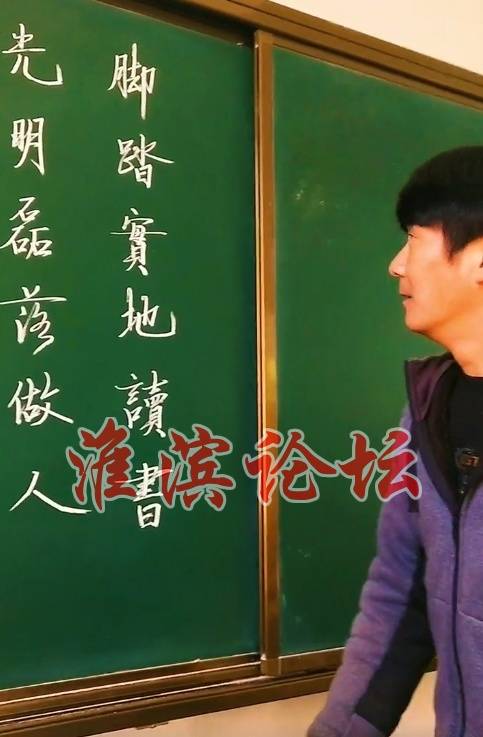 脚踏實地讀書
光明磊落做人
淮滨论坛